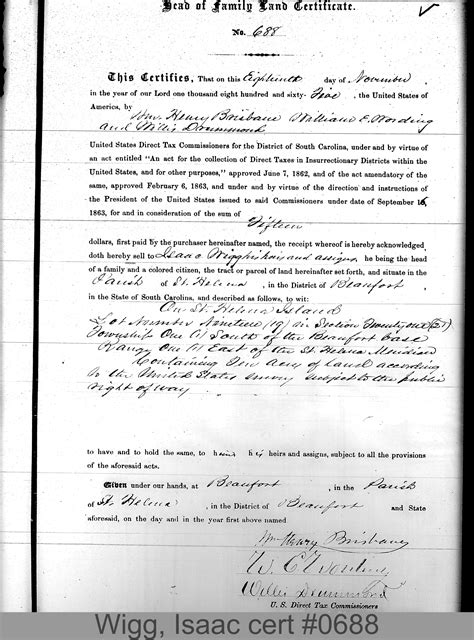 Head of Family Land Certificate.
No. 688
This Certifies, That on this Eighteenth day of November
in the year of our Lord one thousand eight hundred and sixty-Five, the United States of
America, by Wm. Henry Brisbane William E. Wording
and Willis Drummond
United States Direct Tax Commissioners for the District of South Carolina, under and by virtue of
an act entitled "An act for the collection of Direct Taxes in Insurrectionary Districts within
the United States, and for other purposes," approved June 7, 1862, and of the act amendatory of the
same, approved February 6, 1863, and under and by virtue of the direction and instructions of
the President of the United States issued to said Commissioners under date of September 16,
1863, for and in consideration of the sum of
Fifteen
dollars, first paid by the purchaser hereinafter named, the receipt whereof is hereby acknowledged
doth hereby sell to Isaac Wigg his heirs and assigns, he being the head
of a family and a colored citizen, the tract or parcel of land hereinafter set forth, and situate in the
Parish of St. Helena, in the District of Beaufort
in the State of South Carolina, and described as follows, to wit:
On St. Helena Island
Lot Number Nineteen (19) in Section Twenty one (21)
Township One (1) South of the Beaufort base
Range One (1) East of the St. Helena Meridian
Containing Ten Acres of Land according
to the United States survey subject to the public
right of way
to have and to hold the same, to him his heirs and assigns, subject to all the provisions
of the aforesaid acts.
Given under our hands, at Beaufort, in the Parish
of St. Helena, in the District of Beaufort and State
aforesaid, on the day and in the year first above named
Wm Henry Brisbane
W. E. Wording
Willis Drummond
U. S. Direct Tax Commissioners
Wigg, Isaac cert #0688